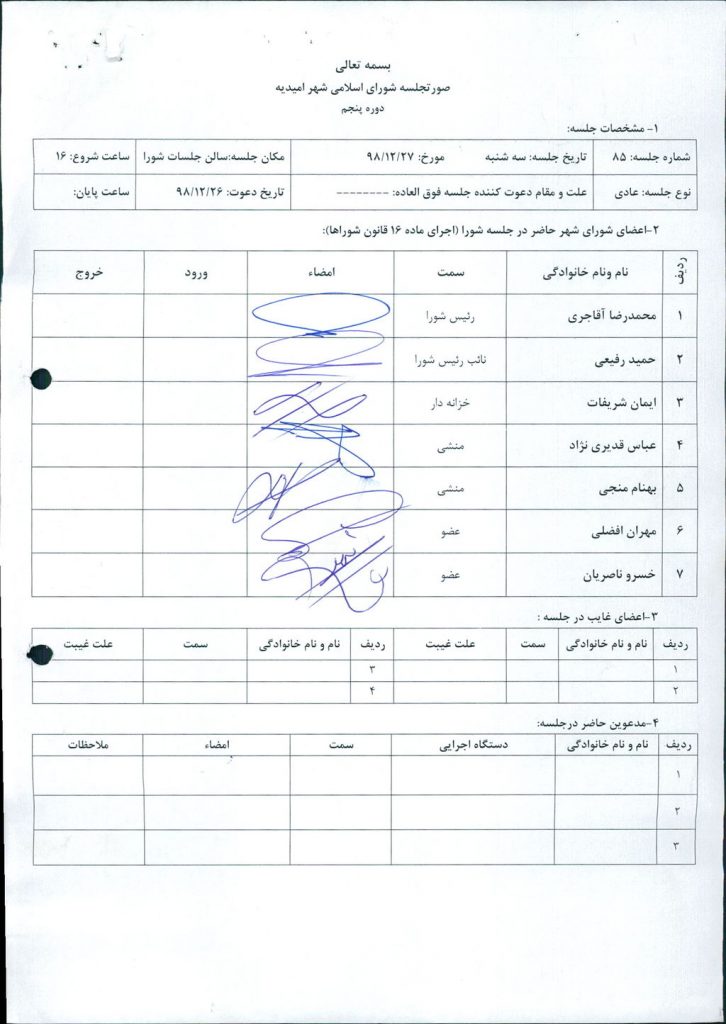 بسمه تعالی
صورتجلسه شورای اسلامی شهر امیدیه
دوره پنجم
۱- مشخصات جلسه:
شماره جلسه: ۸۵ تاریخ جلسه: سه شنبه مورخ: ۹۸/۱۲/۲۷ مکان جلسه:سالن جلسات شورا ساعت شروع: ۱۶
نوع جلسه: عادی علت و مقام دعوت کننده جلسه فوق العاده: -------- تاریخ دعوت: ۹۸/۱۲/۲۶ ساعت پایان:
۲-اعضای شورای شهر حاضر در جلسه شورا (اجرای ماده ۱۶ قانون شوراها):
ردیف نام ونام خانوادگی سمت امضاء ورود خروج
۱ محمدرضا آقاجری رئیس شورا
۲ حمید رفیعی نائب رئیس شورا
۳ ایمان شریفات خزانه دار
۴ عباس قدیری نژاد منشی
۵ بهنام منجی منشی
۶ مهران افضلی عضو
۷ خسرو ناصریان عضو
۳-اعضای غایب در جلسه :
ردیف نام و نام خانوادگی سمت علت غیبت ردیف نام و نام خانوادگی سمت علت غیبت
۱ ۳
۲ ۴
۴-مدعوین حاضر درجلسه:
ردیف نام و نام خانوادگی دستگاه اجرایی سمت امضاء ملاحظات
۱
۲
۳